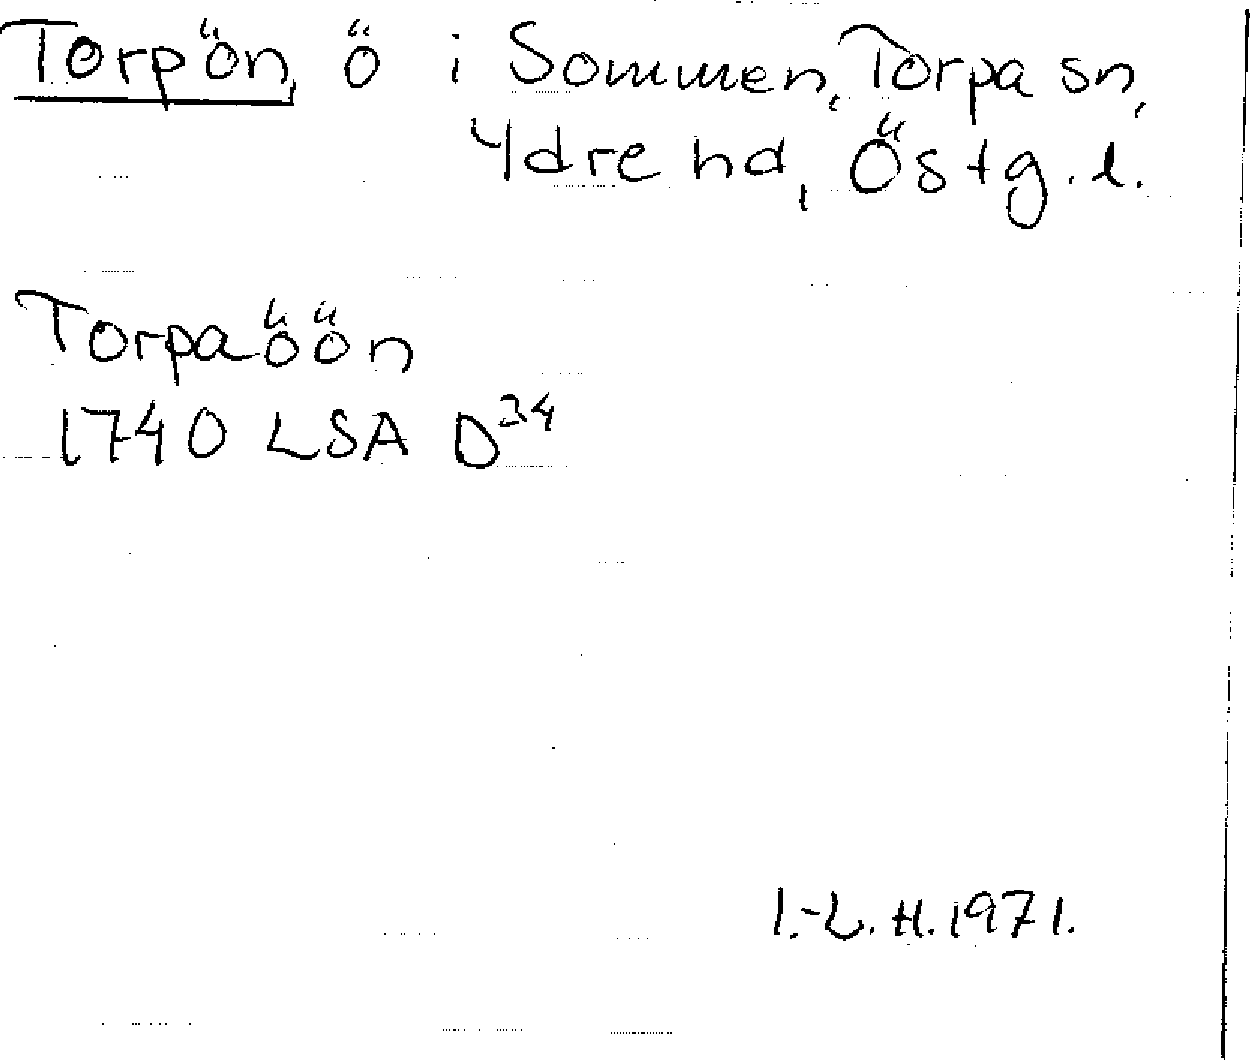 Torpön, ö i Sommen, Torpa sn,
Ydre hd, Östg. l.
Torpaöön
1740 LSA D34
I.-L. H. 1971.